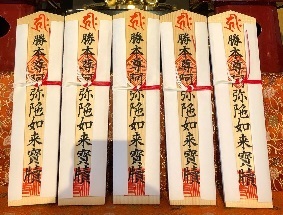 勝本尊阿弥陀如来寳牘
勝本尊阿弥陀如来寳牘
勝本尊阿弥陀如来寳牘
勝本尊阿弥陀如来寳牘
勝本尊阿弥陀如来寳牘